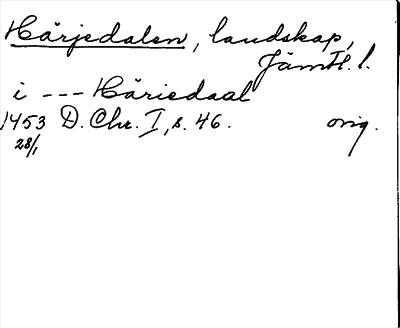 Härjedalen, landskap,
Jämtl. l.
i --- Häriedaal
1453 D. Chr. I, s. 46. orig.
28/1